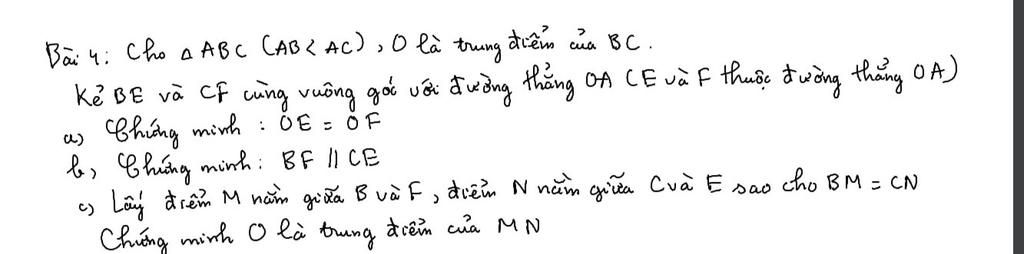 Bài 4: Cho △ ABC (AB < AC), O là trung điểm của BC.
Kẻ BE và CF cùng vuông góc với đường thẳng OA (E và F thuộc đường thẳng OA)
a) Chứng minh : OE = OF
b, Chứng minh: BF // CE
c) Lấy điểm M nằm giữa B và F, điểm N nằm giữa C và E sao cho BM = CN
Chứng minh O là trung điểm của MN